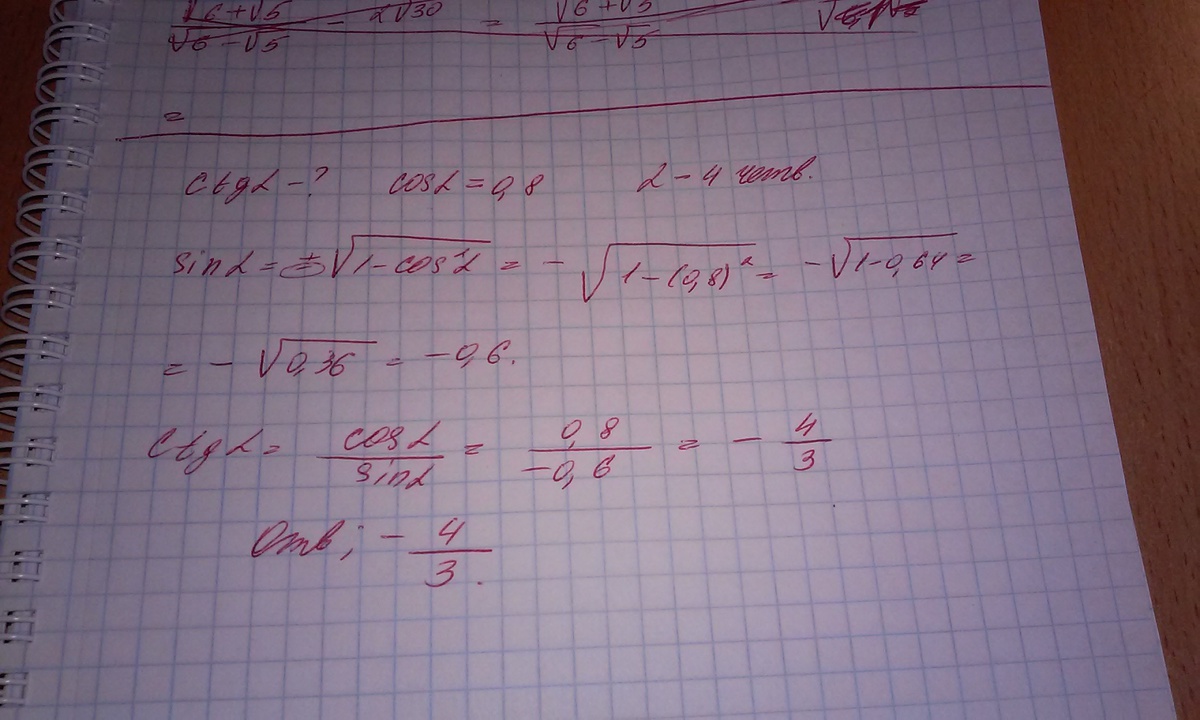 √6+√5 / √6-√5 - 2√30 = √6+√5 / √6-√5
=
ctgα - ? cosα = 0,8 α - 4 четв.
sinα = ±√1-cos²α = -√1-(0,8)² = -√1-0,64 =
= -√0,36 = -0,6.
Ctgα = cosα / sinα = 0,8 / -0,6 = - 4/3
Отв; - 4/3.